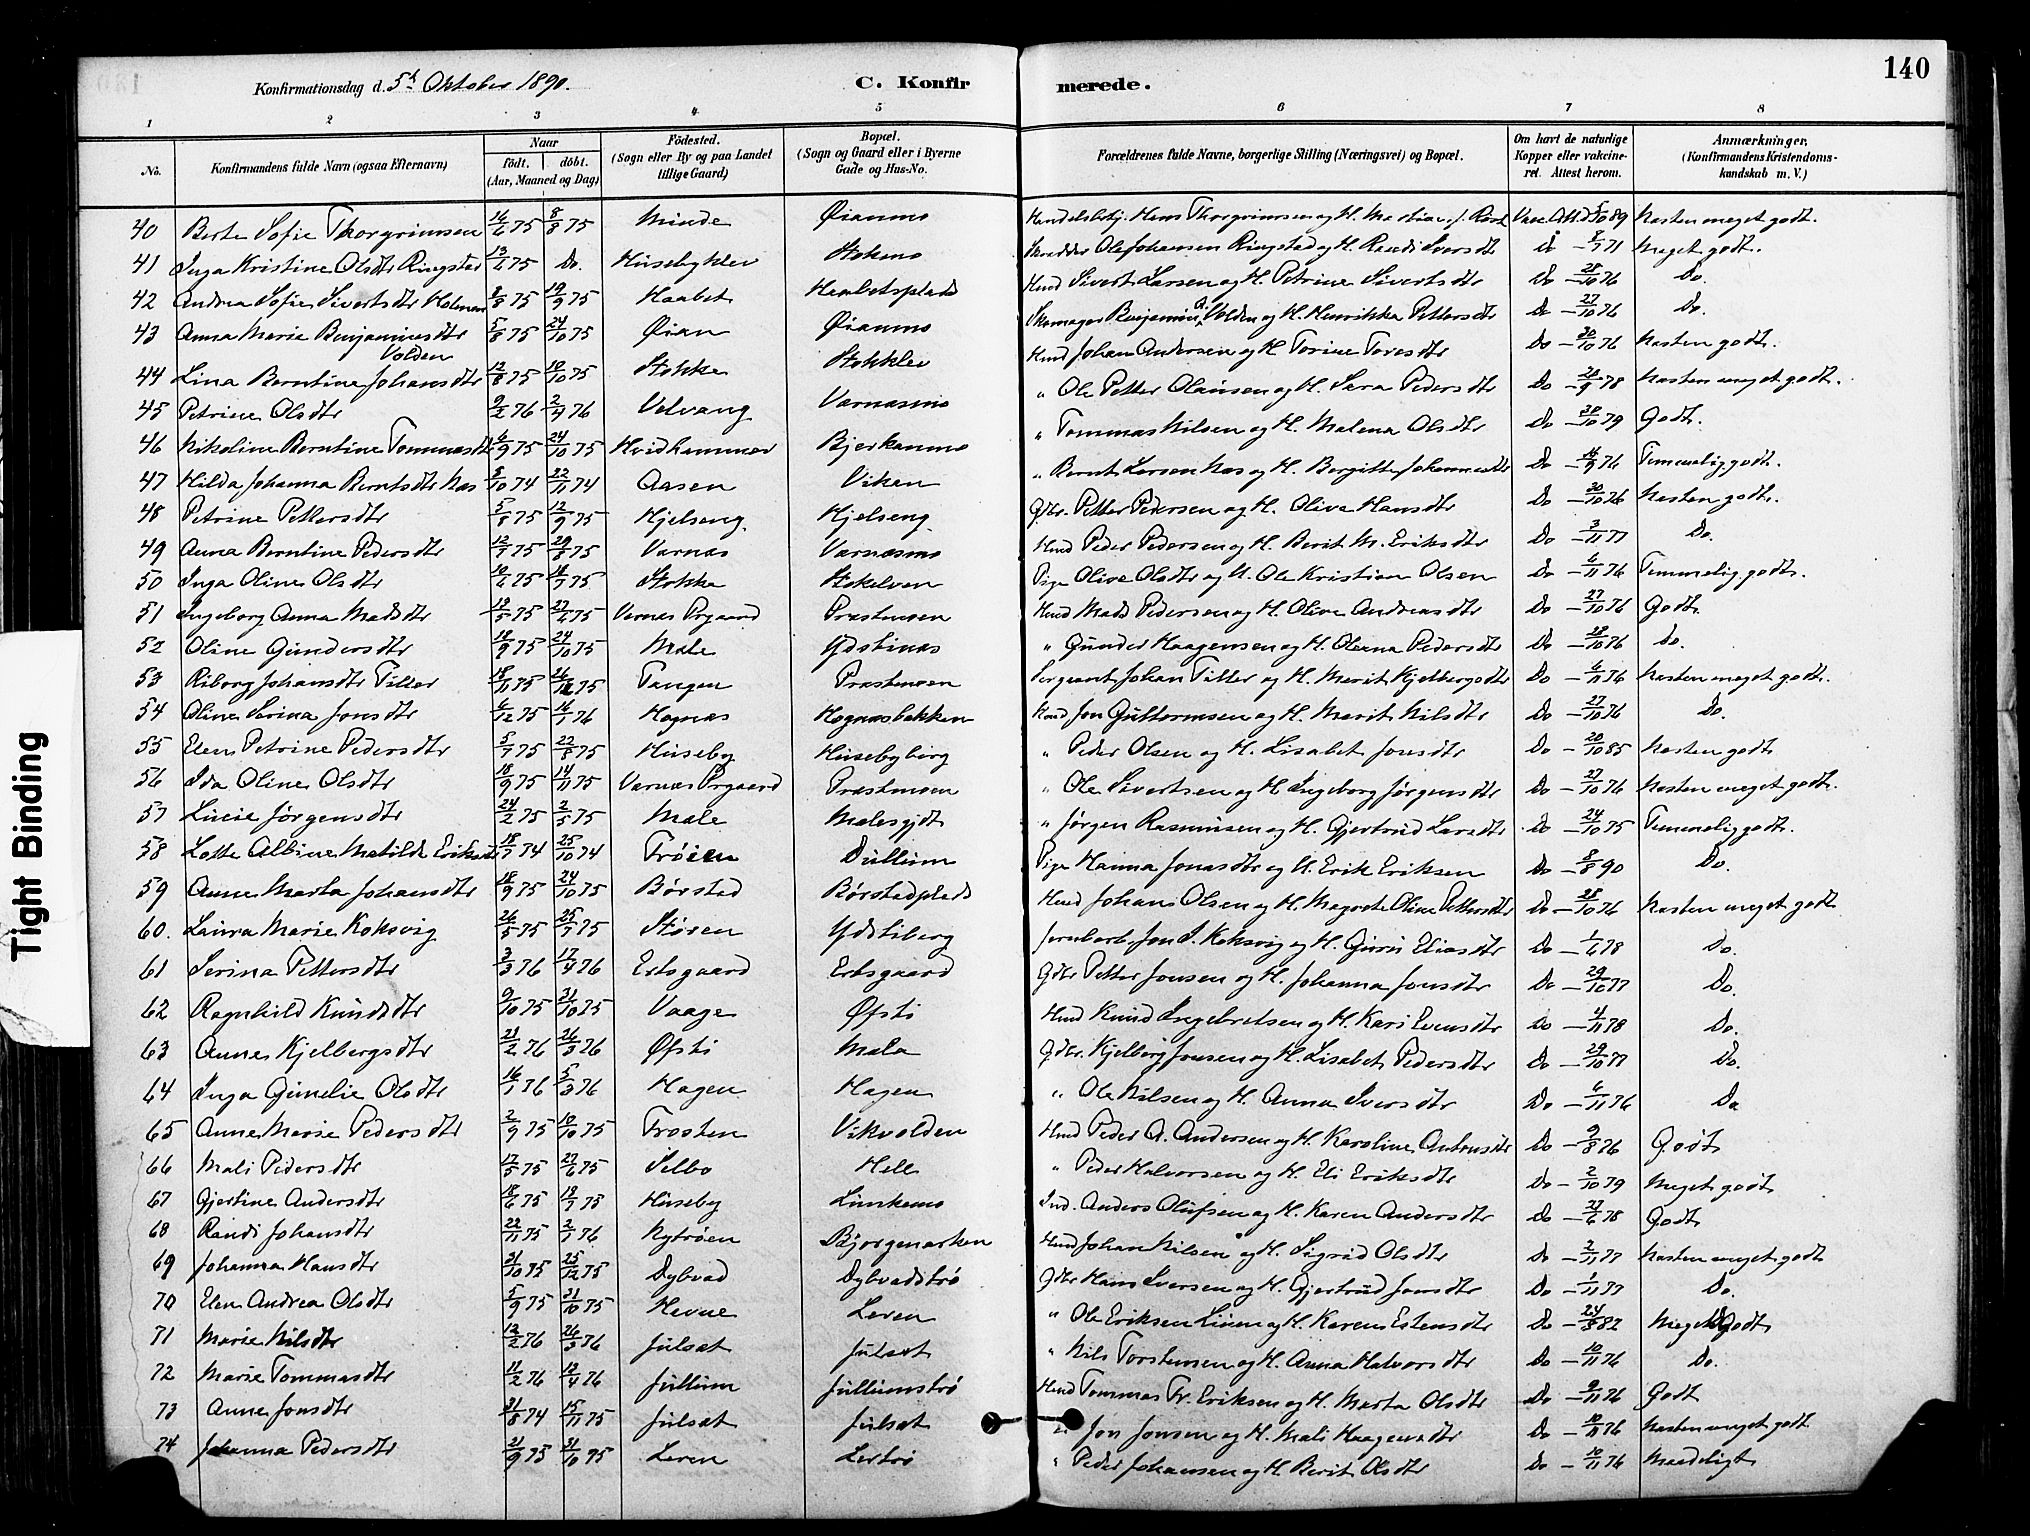 Konfirmationsdag d. 5te Oktober 1890.
C. Konfirmerede.
140
1 2 3 4 5 6 7 8
No. Konfirmandens fulde Navn (ogsaa Efternavn) Naar födt. döbt. (Aar, Maaned og Dag) Födested. (Sogn eller By og paa Landet tillige Gaard) Bopæl. (Sogn og Gaard eller i Byerne Gade og Hus-No. Forældrenes fulde Navne, borgerlige Stilling (Næringsvei) og Bopæl. Om havt de naturlige Kopper eller vakcineret. Attest herom. Anmærkninger, (Konfirmandens Kristendomskundskab m. V.)
40 Berte Sofie Thorgrimsen 14/6 75 8/8 75 Minde Øianmo Hans Thorgrimsen og H. Vacc. Att. d. 5/10 89 Næsten meget godt.
41 Inga Kristine Olsdtr Ringstad 13/6 75 Do. Husebyklev Stokmo Skredder Ole Johansen Ringstad og H. Randi Iversdtr Do 8/7 71 Meget godt.
42 Andrea Sofie Sivertsdtr Holman 8/8 75 19/9 75 Haabet Haabetsplads Hmd Sivert Larsen og H. Petrine Sivertsdtr Do 28/10 76 Do.
43 Anna Marie Benjaminsdtr Volden 5/8 75 24/10 75 Øian Øianmo Skomager Benjamin Volden og H. Henrikka Pettersdtr Do 27/10 76 Do.
44 Lina Berntine Johansdtr 12/8 75 10/10 75 Stokke Stokklev Hmd Johan Andersen og H Torine Toresdtr Do 30/10 76 Næsten godt.
45 Petrine Olsdtr 9/2 76 2/4 76 Velvang Værnesmo " Ole Petter Olausen og H. Sara Pedersdtr Do 20/9 78 Næsten meget godt.
46 Nikoline Berntine Tommasdtr 6/9 75 24/10 75 Hvidhammer Bjerkanmo " Tommas Nilsen og H. Malena Olsdtr Do 30/10 79 Godt.
47 Hilda Johanna Berntsdtr Næs 8/10 74 22/11 74 Aasen Viken " Bernt Larsen Næs og H. Bergitte Johannesdtr Do 14/9 76 Temmelig godt.
48 Petrine Pettersdtr 5/8 75 12/9 75 Hjelseng Hjelseng Gbr. Petter Pedersen og H. Oliva Hansdtr Do 30/10 76 Næsten godt.
49 Anna Berntine Pedersdtr 12/7 75 29/8 75 Værnæs Værnæsmo Hmd Peder Pedersen og H. Berit M. Eriksdtr Do 3/11 77 Do.
50 Inga Oline Olsdtr 10/6 75 18/7 75 Stokke Stokelven Pige Olive Olsdtr og U. Ole Kristian Olsen Do 6/11 76 Temmelig godt.
51 Ingeborg Anna Madsdtr 13/5 75 27/6 75 Værnes Prgaard Præstmoen Hmd Mads Pedersen og H. Oline Andreasdtr Do 27/10 76 Godt.
52 Oline Gundersdtr 18/9 75 24/10 75 Mæle Ydstinæs " Gunder Haagensen og H. Oleana Pedersdtr Do 10 76 Do.
53 Riborg Johansdtr Tiller 18/11 75 26/12 75 Tangen Præstmoen Sergeant Johan Tiller og H. Merit Kjelbergsdtr Do 6/11 76 Næsten meget godt.
54 Oline Serina Jonsdtr 6/12 75 16/1 76 Hognæs Hognæsbakken Hmd Jon Guttormsen og H. Marit Nilsdtr Do 27/10 76 Do.
55 Elen Petrine Pedersdtr 5/7 75 22/8 75 Huseby Husebyberg " Peder Olsen og H. Lisabet Jonsdtr Do 20/10 85 Næsten godt
56 Ida Oline Olsdtr 18/9 75 14/11 75 Værnæs Prgaard Præstmoen " Ole Sivertsen og H. Ingeborg Jørgensdtr Do 27/10 76 Næsten meget godt.
57 Lucie Jørgensdtr 24/2 75 2/5 75 Mæle Mælesgjdt " Jørgen Rasmusen og H. Gjertrud Larsdtr Do 24/10 75 Temmelig godt.
58 Lotte Albine Matilde Eriksdtr 18/7 74 25/10 74 Trøien Dullum Pige Hanna Jonasdtr og U. Erik Eriksen Do 8/8 90 Do.
59 Anne Marta Johansdtr 18/9 75 24/10 75 Børstad Børstadplads Hmd Johan Olsen og H. Magrete Oline Pettersdtr Do 28/10 76 Næsten meget godt
60. Laura Marie Koksvig 26/5 75 25/7 75 Støren Ydstiberg Jernbarb. Jon J. Koksvig og H. Guru Eliasdtr Do 1/6 78 Do.
61 Serina Pettersdtr 3/3 76 17/4 76 Ertsgaard Ertsgaard Gbr Petter Jonsen og H. Johanna Jonsdtr Do 29/10 77 Do.
62 Ragnhild Knudsdtr 9/10 75 31/10 75 Vaage Øfsti Hmd Knud Ingebretsen og H. Kari Evensdtr Do 4/11 78 Do.
63 Anne Kjelbergsdtr 21/2 76 26/3 76 Øfsti Mæla Gbr. Kjelberg Jonsen og H. Lisabet Pedersdtr Do 29/10 77 Do.
64 Inga Gunelie Olsdtr 16/1 76 5/3 76 Hagen Hagen " Ole Nilsen og H. Anna Iversdtr Do 6/11 76 Do
65 Anne Marie Pedersdtr 2/9 75 10/10 75 Frosten Vikvolden Hmd Peder A. Andersen og H. Karoline Antonsdtr Do 9/8 76 Godt
66 Mali Pedersdtr 17/5 75 27/6 75 Selbo Hell " Peder Halvorsen og H. Eli Eriksdtr Do 2/10 79 Meget godt
67 Gjertine Andersdtr 18/6 75 18/7 75 Huseby Linkemo Ind. Anders Olufsen og H. Karen Andersdtr Do 27/6 78 Godt
68 Randi Johansdtr 22/11 75 2/1 76 Nytrøen Bjørgmarken Hmd Johan Nilsen og H. Sigrid Olsdtr Do 2/11 77 Næsten meget godt
69 Johanna Hansdtr 31/10 75 25/12 75 Dybvad Dybvadstrø Gbr Hans Iversen og H. Gjertrud Jonsdtr Do 1/11 77 Do.
70 Elen Andrea Olsdtr 5/9 75 31/10 75 Hevne Leren " Ole Eriksen Lium og H. Karen Estensdtr Do 24/8 82 Meget Godt
71 Marie Nilsdtr 12/2 76 26/3 76 Julsæt Julsæt " Nils Torstensen og H. Anna Halvorsdtr Do 10/11 76 Do.
72 Marie Tommasdtr 11/2 76 17/4 76 Jullum Jullumstrø Hmd Tommas Fr. Eriksen og H. Marta Olsdtr Do 9/11 76 Godt
73 Anne Jonsdtr 31/8 74 15/11 75 Julsæt Julsæt " Jon Jonsen og H. Mali Haagensdtr Do 10/11 76 Næsten meget godt
74 Johanna Pedersdtr 21/9 75 31/10 75 Leren Lertrø " Peder Johansen og H Berit Olsdtr Do 10/11 76 Maadeligt
Tight Binding